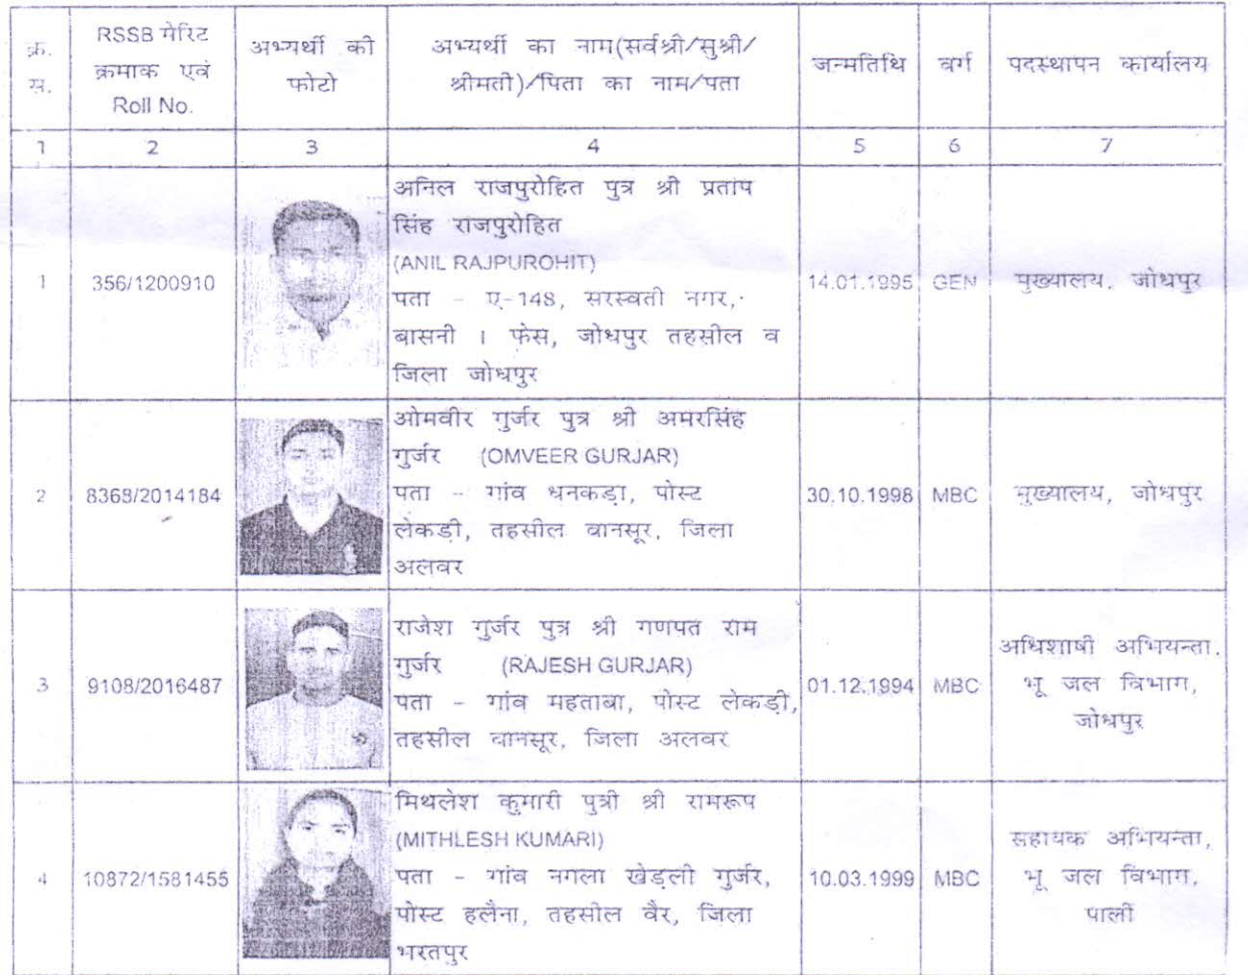 क्र. स.
RSSB मेरिट क्रमाक एवं Roll No.
अभ्यर्थी की फोटो
अभ्यर्थी का नाम(सर्वश्री/सुश्री/ श्रीमती)/पिता का नाम/पता
जन्मतिथि
वर्ग
पदस्थापन कार्यालय
1 2 3 4 5 6 7
1
356/1200910
अनिल राजपुरोहित पुत्र श्री प्रताप
सिंह राजपुरोहित
(ANIL RAJPUROHIT)
पता - ए-148, सरस्वती नगर,
बासनी । फेस, जोधपुर तहसील व
जिला जोधपुर
14.01.1995
GEN
मुख्यालय, जोधपुर
2
8368/2014184
ओमवीर गुर्जर पुत्र श्री अमरसिंह
गुर्जर (OMVEER GURJAR)
पता - गांव धनकडा, पोस्ट
लेकडी, तहसील बानसूर, जिला
अलवर
30.10.1998
MBC
मुख्यालय, जोधपुर
3
9108/2016487
राजेश गुर्जर पुत्र श्री गणपत राम
गुर्जर (RAJESH GURJAR)
पता - गांव महताबा, पोस्ट लेकड़ी,
तहसील बानसूर, जिला अलवर
01.12.1994
MBC
अधिशाषी अभियन्ता,
भू जल विभाग,
जोधपुर
4
10872/1581455
मिथलेश कुमारी पुत्री श्री रामरूप
(MITHLESH KUMARI)
पता - गांव नगला खेड़ली गुर्जर,
पोस्ट हलैना, तहसील वैर, जिला
भरतपुर
10.03.1999
MBC
सहायक अभियन्ता,
भू जल विभाग,
पाली